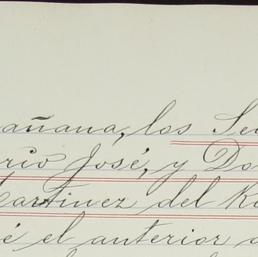 añana, los Se
rio José, y Do
Martinez del R
é el anterior a